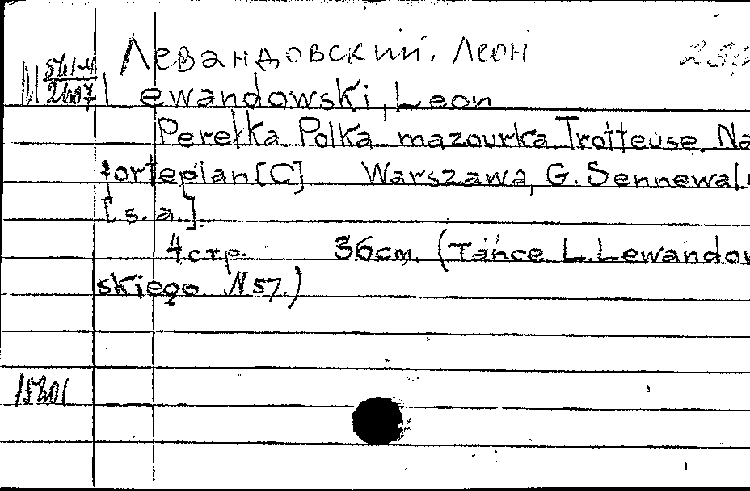 Левандовский, Леон
Lewandowski, Leon
Perełka Polka mazourka Trotteuse. Na
fortepian [C] Warszawa, G. Sennewal
[s.a.]
4 стр. 36 см. (Tańce L. Lewandow
skiego N 57.)